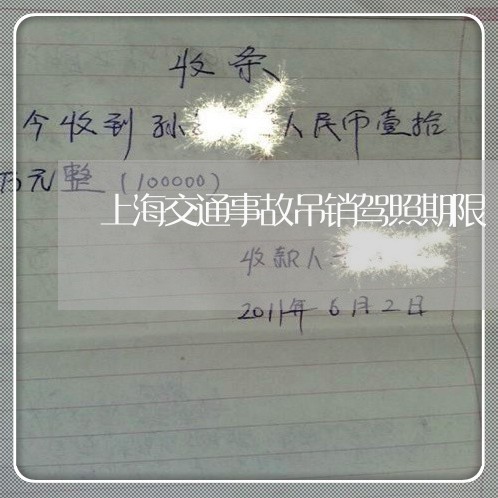 收条
今收到孙 人民币壹拾
万元整(100000)
上海交通事故吊销驾照期限
收款人
2011年6月2日